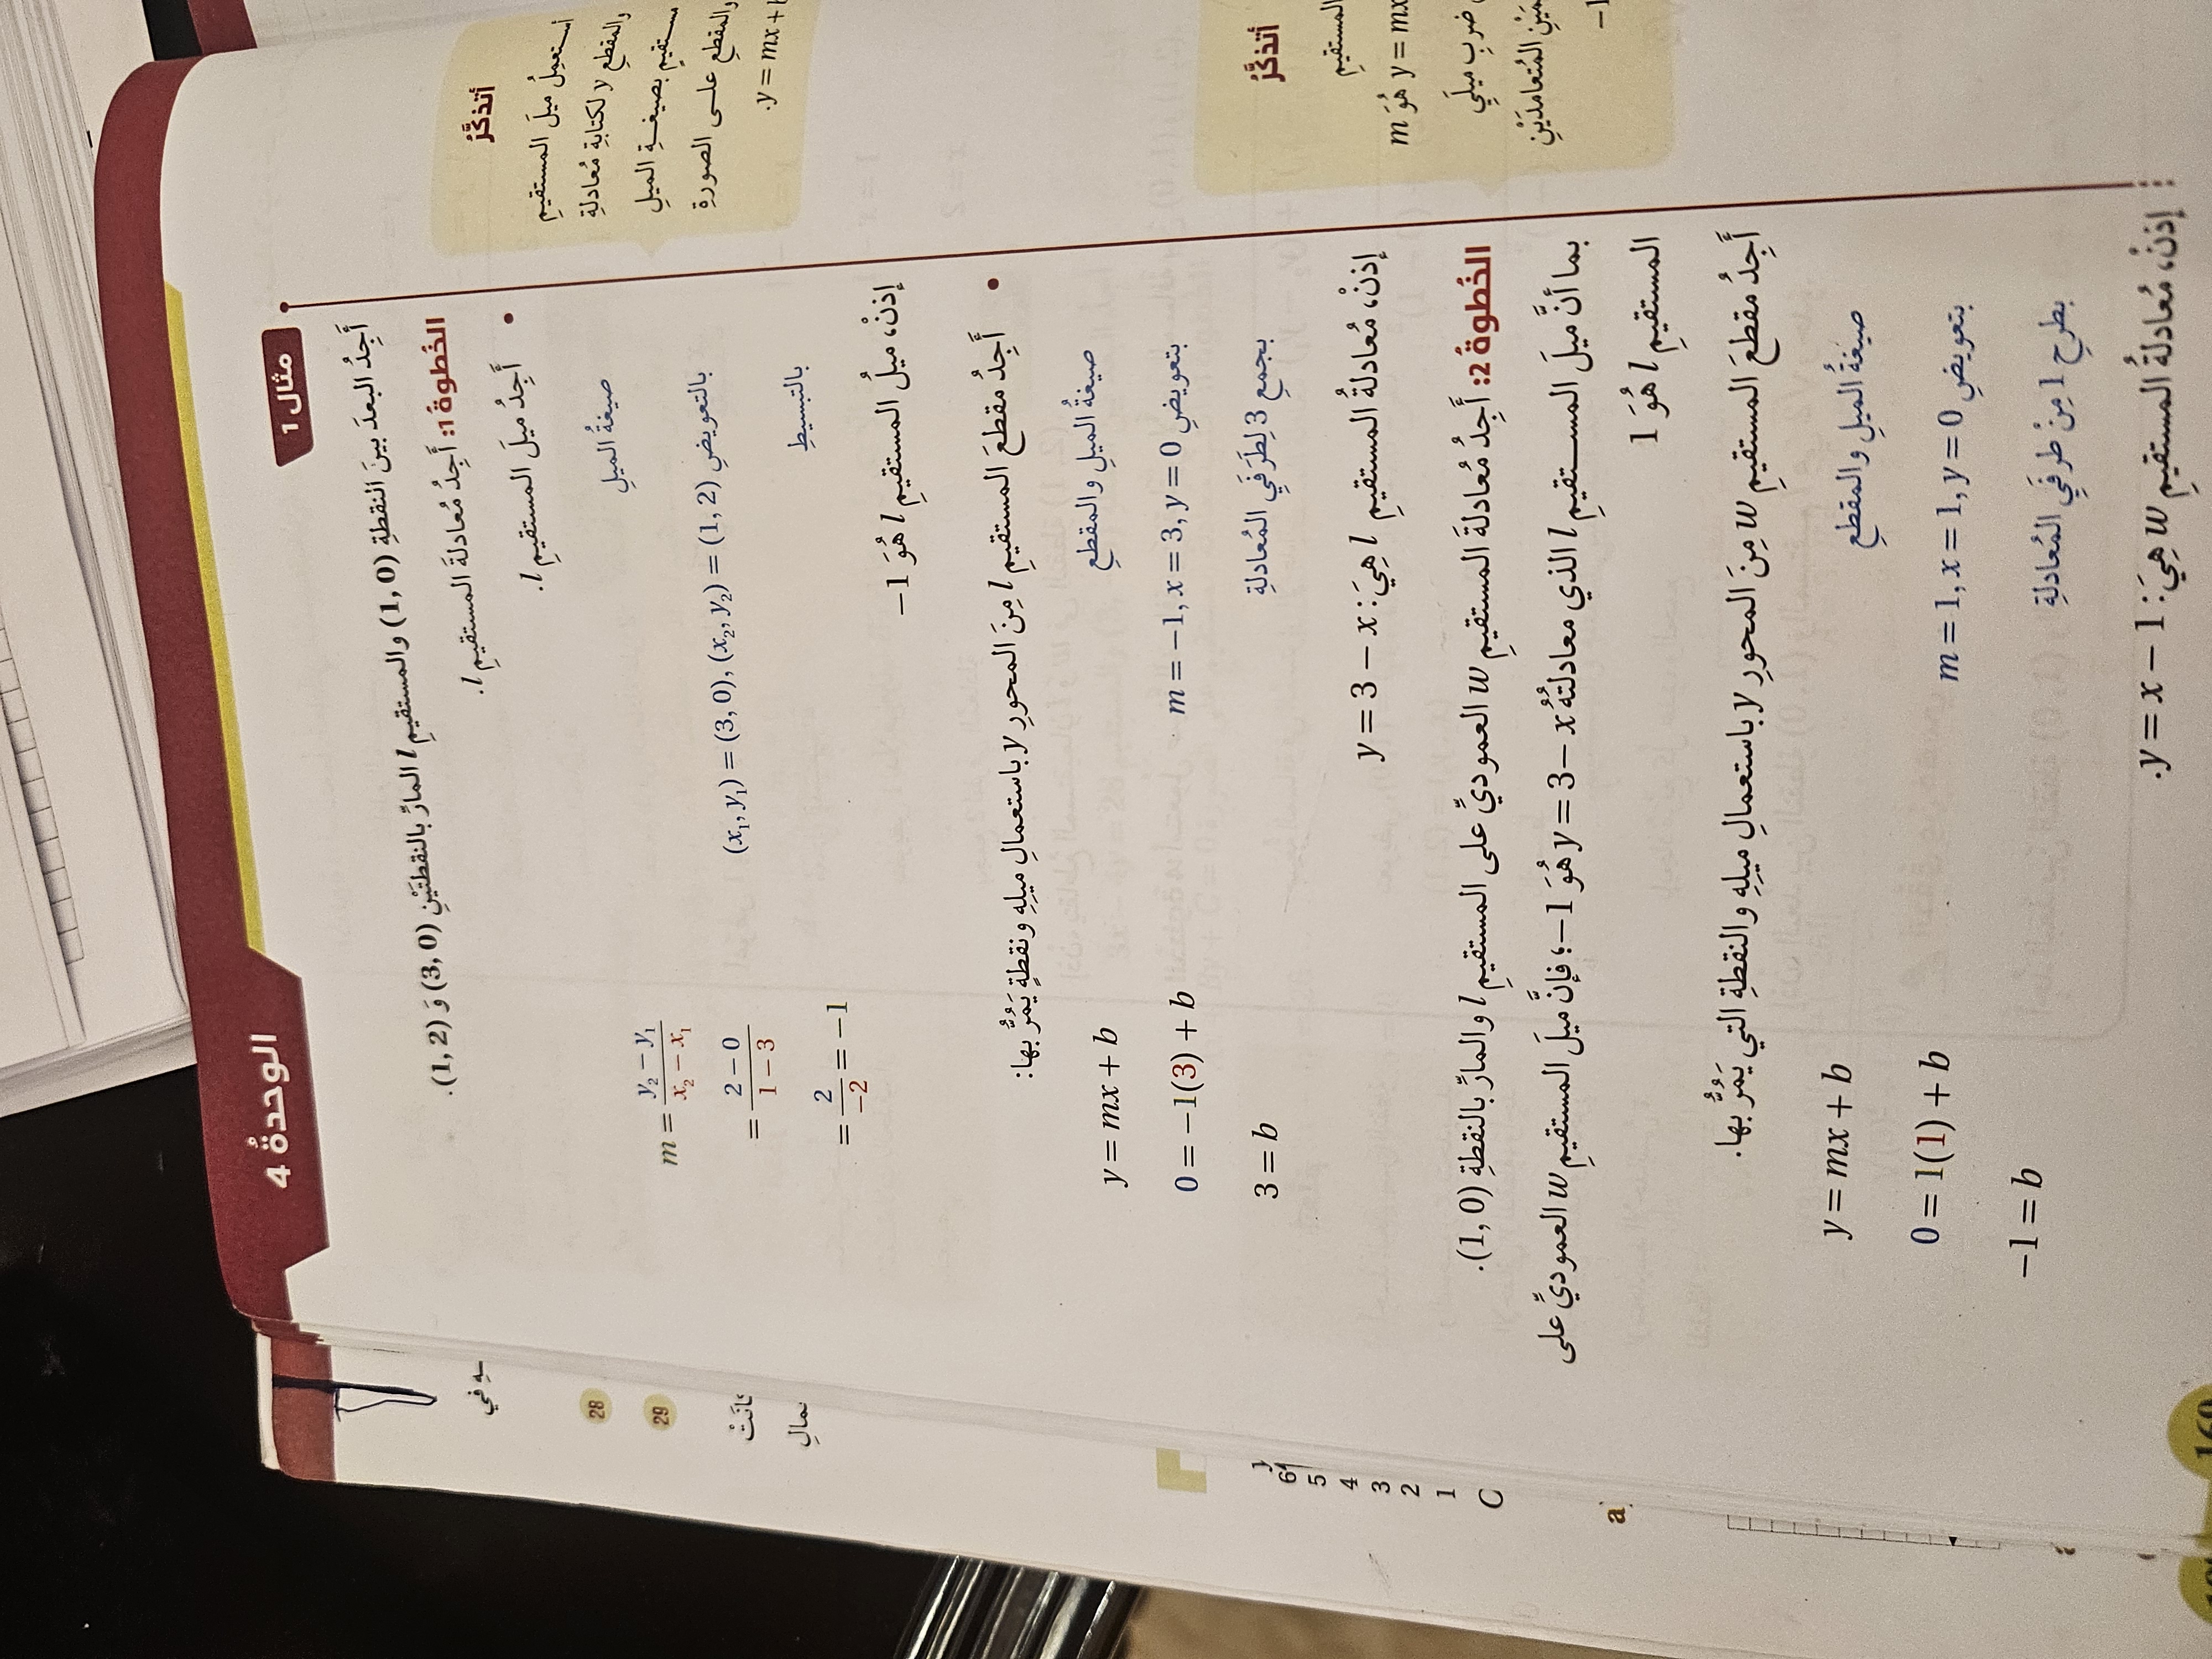 الوحدةُ 4
مثال 1
أَجِدُ البعدَ بينَ النقطةِ (1, 0) والمستقيمِ l المارِّ بالنقطتَيْنِ (3, 0) وَ (1, 2).
الخُطوةُ 1: أَجِدُ مُعادلةَ المستقيمِ l.
• أَجِدُ ميلَ المستقيمِ l.
m = \frac{y₂ − y₁}{x₂ − x₁} صيغةُ الميلِ
= \frac{2 − 0}{1 − 3} بالتعويضِ (x₁, y₁) = (3, 0), (x₂, y₂) = (1, 2)
= \frac{2}{−2} = −1 بالتبسيطِ
إذنْ، ميلُ المستقيمِ l هُوَ −1
• أَجِدُ مقطعَ المستقيمِ l مِنَ المحورِ y باستعمالِ ميلِهِ ونقطةٍ يَمُرُّ بها:
y = mx + b صيغةُ الميلِ والمقطعِ
0 = −1(3) + b بتعويضِ m = −1, x = 3, y = 0
3 = b بجمعِ 3 لِطرَفَيِ المُعادلةِ
إذنْ، مُعادلةُ المستقيمِ l هِيَ: y = 3 − x
الخُطوةُ 2: أَجِدُ مُعادلةَ المستقيمِ w العموديِّ على المستقيمِ l والمارِّ بالنقطةِ (1, 0).
بما أنَّ ميلَ المستقيمِ l الذي معادلتُهُ y = 3 − x هُوَ −1؛ فإنَّ ميلَ المستقيمِ w العموديِّ على
المستقيمِ l هُوَ 1
أَجِدُ مقطعَ المستقيمِ w مِنَ المحورِ y باستعمالِ ميلِهِ والنقطةِ التي يَمُرُّ بها.
y = mx + b صيغةُ الميلِ والمقطعِ
0 = 1(1) + b بتعويضِ m = 1, x = 1, y = 0
−1 = b بطرحِ 1 مِنْ طرفَيِ المُعادلةِ
إذنْ، مُعادلةُ المستقيمِ w هِيَ: y = x − 1.
أتذكَّرُ
أستعمِلُ ميلَ المستقيمِ
والمقطعِ y لكتابةِ مُعادلةِ
مستقيمٍ بصيغةِ الميلِ
والمقطعِ على الصورةِ
y = mx + b.
أتذكَّرُ
المستقيمِ
y = mx هُوَ m
ضربِ ميلَيِ
المُتعامدَيْنِ
−1
28
29
6
5
4
3
2
1
C
a
160